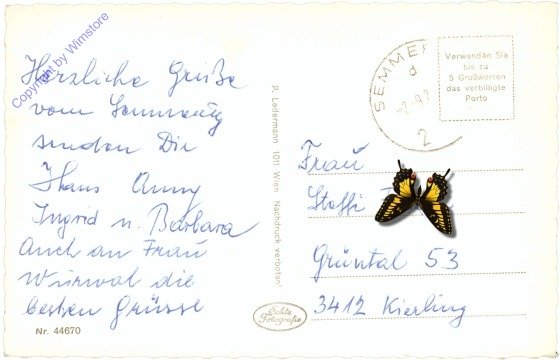 Copyright by Wimstore
Herzliche Grüße
vom Semmering
senden Dir
Hans Anny
Ingrid u. Barbara
Auch an Frau
die
besten Grüsse
Nr. 44670
P. Ledermann 1011 Wien Nachdruck verboten!
Echte
Fotografie
SEMMER
d
2
Verwenden Sie
bis zu
5 Grußworten
das verbilligte
Porto
Frau
Steffi
Grüntal 53
3412 Kierling